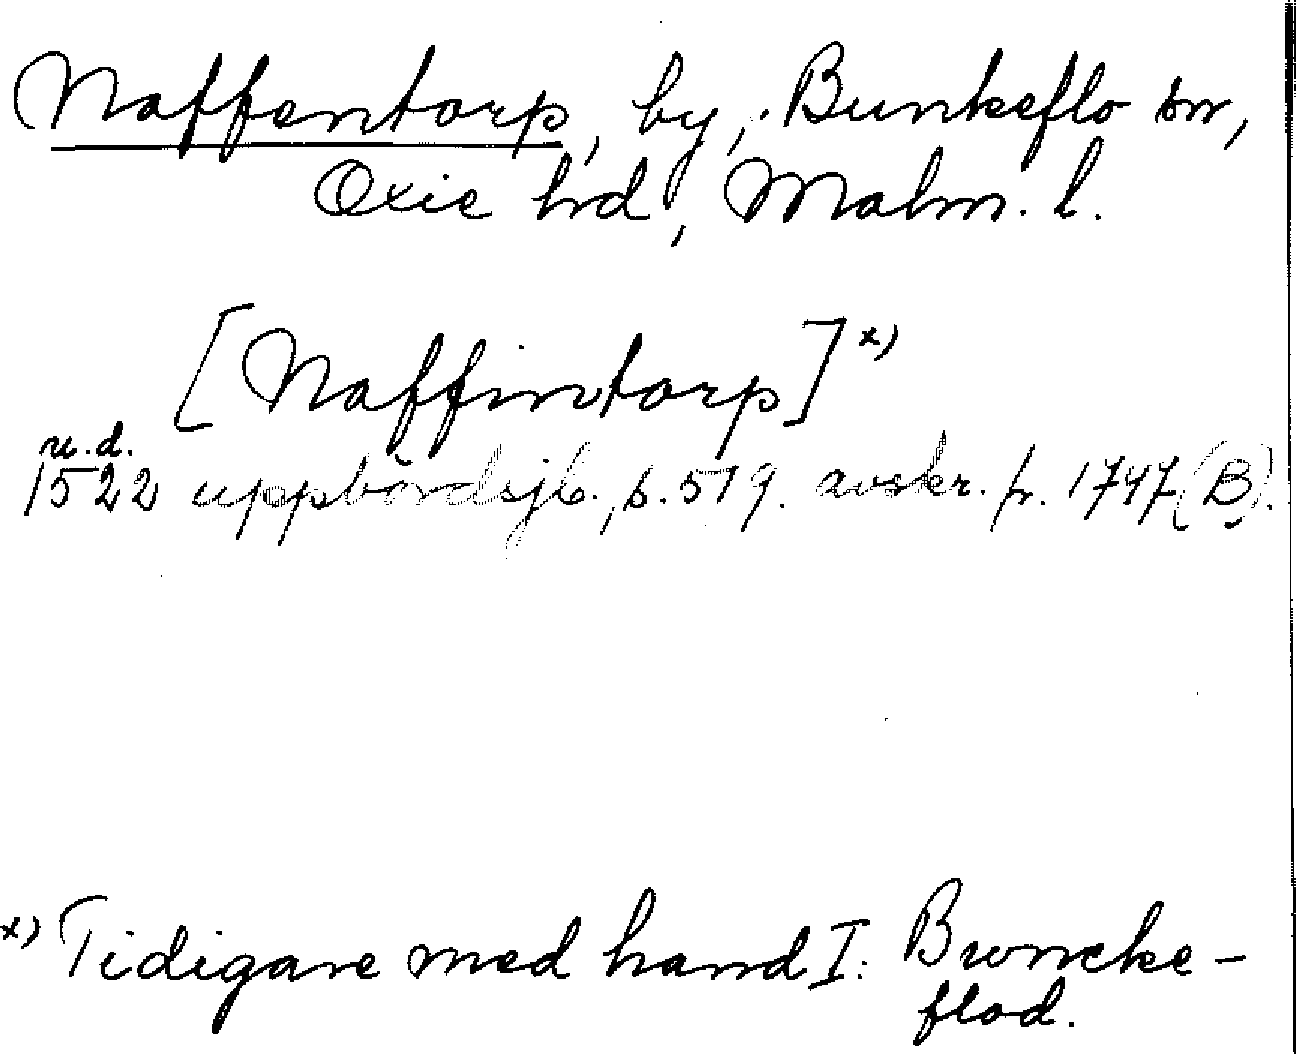 Naffentorp, by, Bunkeflo sn,
Oxie hrd, Malm. l.
[Naffintorp] x)
u.d.
1522 uppbördsjb., s. 519. avskr. fr. 1747 (B).
x) Tidigare med hand I: Bruncke-
flod.